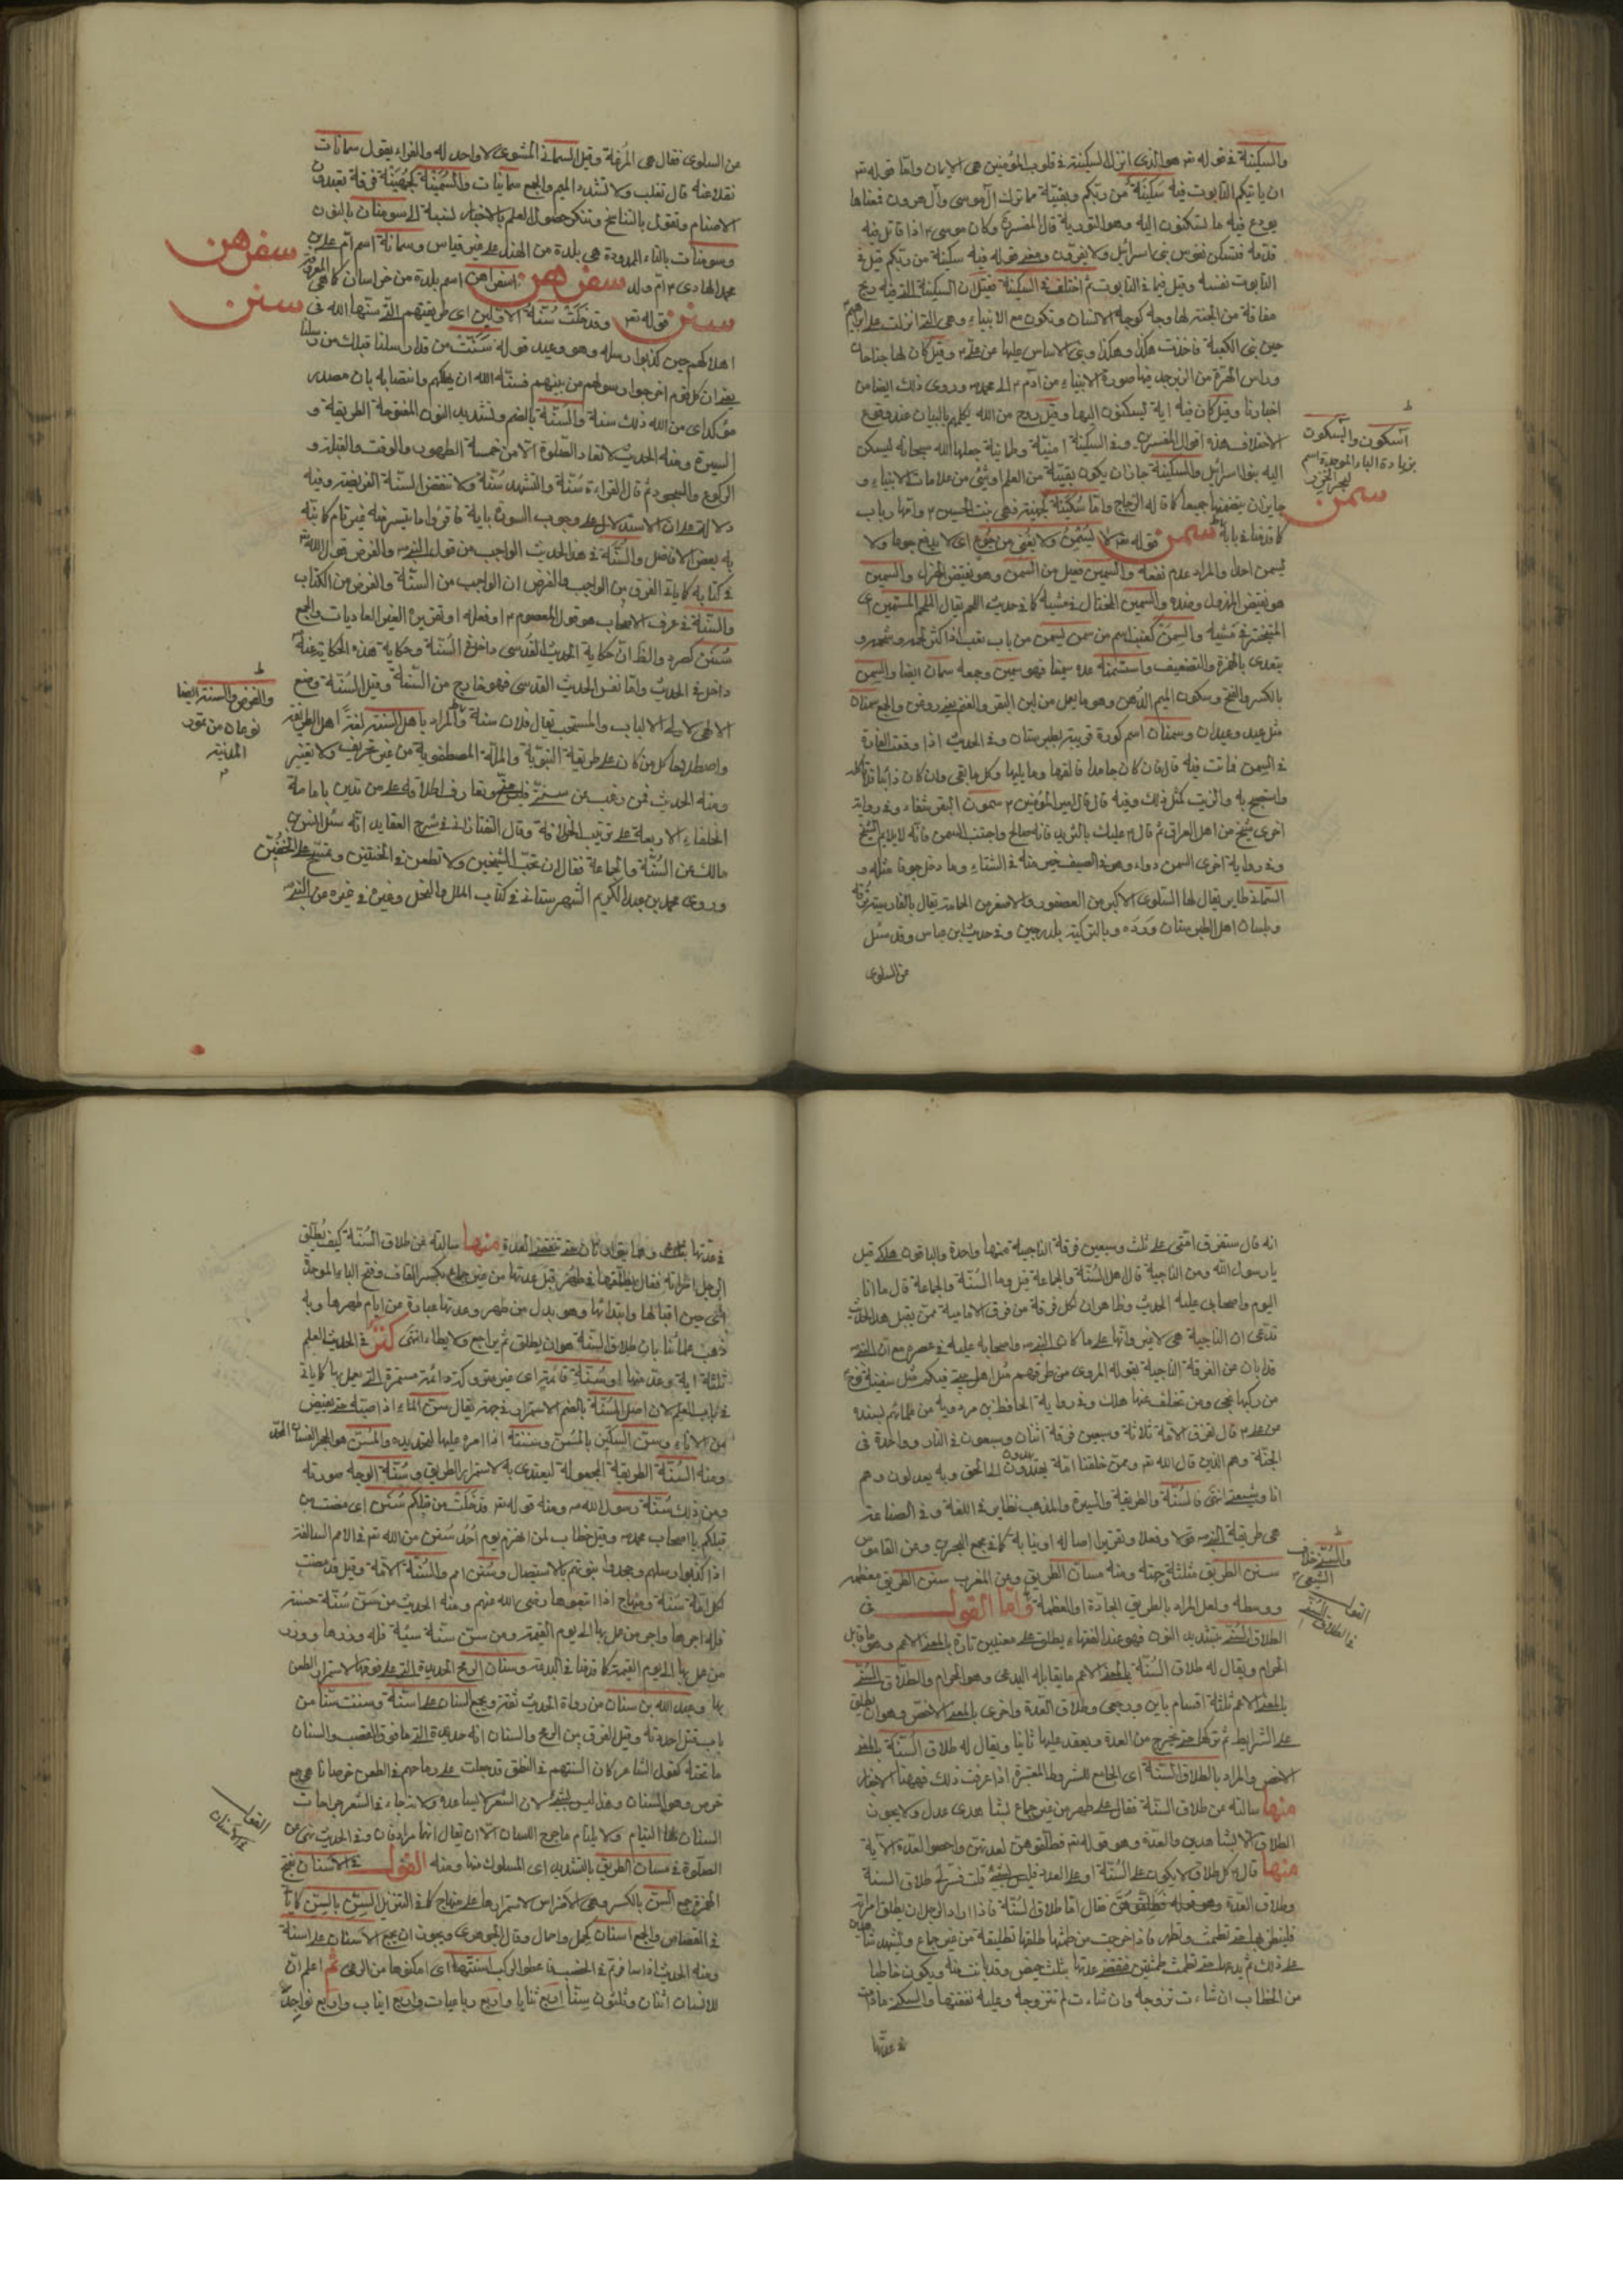 والسكينة في قوله تع هو الذي انزل السكينة في قلوب المؤمنين هي الايمان واما قوله تع
ان ياتيكم التابوت فيه سكينة من ربكم وبقية مما ترك آل موسى وآل هرون فمعناها
يودع فيه ما تسكنون اليه وهو التورية قال المفسرون وكان موسى ع اذا قاتل فيه
قدمه فتسكن نفوس بني اسرائيل ولا يفرون ومعنى قوله فيه سكينة من ربكم قيل في
التابوت نفسه وقيل فيما في التابوت ثم اختلف في السكينة فقيل ان السكينة التي فيه ريح
هفافة من الجنة لها وجه كوجه الانسان وتكون مع الانبياء وهي التي انزلت على ابرهيم
حين بنى الكعبة فاخذت هكذا وهكذا وبنى الاساس عليها عن علي ع وقيل كان لها جناحان
وراس الهرة من الزبرجد فيها صورة الانبياء من آدم ع الى محمد ص وروى ذلك ايضا من
اخبارنا وقيل كان فيه اية تسكنون اليها وقيل روح من الله يكلمهم بالبيان عند وقوع
الاختلاف هذه اقوال المفسرين وفي السكينة امنية وطمانينة جعلها الله سبحانه ليسكن
اليه بنو اسرائيل والسكينة جاز ان يكون بقية من العلم او شيء من علامات الانبياء و
جايز ان يضمنها جميعا كما قاله الزجاج واما سكينة كجهينة فهي بنت الحسين ع وامها رباب
كما قدمنا في بابه سمن قوله تع لا يسمن ولا يغني من جوع اي لا يدفع جوعا ولا
يسمن احدا والمراد عدم نفعه والسمين فعيل من السمن وهو نقيض الهزل والسمين
هو نقيض المهزول وضده والسمين المختال في مشيه كما في حديث
المتبختر في مشيه والسمن كعنب اسم من سمن يسمن من باب تعب اذا كثر لحمه وشحمه و
يتعدى بالهمزة والتضعيف واستسمنه عده سمينا فهو سمين وجمعه سمان ايضا والسمن
بالكسر والفتح وسكون الميم الدهن وهو ما يعمل من لبن البقر والغنم والجمع سمنان
مثل عبد وعبدان وسمنان اسم كورة قريبة بطبرستان وفي الحديث اذا وقعت الفارة
في السمن فماتت فيه قال فان كان جامدا فالقها وما يليها وكل ما بقي وان كان ذائبا فلا تاكله
واستصبح به والزيت كمثل ذلك وفيه قال قال امير المؤمنين ع سمون البقر شفاء وفي رواية
اخرى شيخ من اهل العراق ثم قال ع عليك بالثريد فانه صالح واجتنب السمن فانه لا يلايم الشيخ
وفي رواية اخرى السمن دواء وهو في الصيف خير منه في الشتاء وما دخل جوفا مثله و
السماني طاير يقال لها السلوى الاكبر من العصفور والاصغر من الحمامة يقال بالفارسية
وبلسان اهل الطبرستان وَرَدَه وبالتركية بلدرجين وفي حديث ابن عباس وقد سئل
عن السلوى
اسكون والبسكون
بزيادة الباء الموحدة اسم
لبحر الخزر
سمن
عن السلوى فقال هي المرغة وقيل السماني المشوي لا واحد له والفراء يقول سمانات
نقلا عنه قال ثعلب ولا تشدد الميم والجمع سمانيات والسمنة كجهينة فرقة تعبدون
الاصنام وتقول بالتناسخ وتنكر حصول العلم بالاخبار نسبة الى سومنان بالنون
وسومنات بالتاء الممدودة هي بلدة من الهند على غير قياس وسمانة اسم ام علي بن
محمد الهادي ع ام ولد سفرهن اسفراهن اسم بلدة من خراسان كما هي المعروف
سنن قوله تع وقد خلت سنة الاولين اي طريقتهم التي سنها الله في
اهلاكهم حين كذبوا رسله وهو وعيد قوله سنة من قد ارسلنا قبلك من رسلنا
يعني ان كل قوم اخرجوا رسولهم من بينهم فسنة الله ان يهلكهم وانتصابه بان مصدر
مؤكد اي من الله ذلك سنة والسنة بالضم وتشديد النون المفتوحة الطريقة و
السيرة ومنه الحديث لا تعاد الصلوة الا من خمسة الطهور والوقت والقبلة و
الركوع والسجود ثم قال القراءة سنة والتشهد سنة ولا تنقض السنة الفريضة وفيه
دلالة على ان الاستدلال على وجوب السورة باية فاقرؤا ما تيسر منه غير تام كما نبه
به بعض الافاضل والسنة في هذا الحديث الواجب من قول النبي ص والفرض قول الله تع
في كتابه كما ياتي الفرق بين الواجب والفرض ان الواجب من السنة والفرض من الكتاب
والسنة في عرف الاصحاب هو قول المعصوم ع او فعله او تقريره الغير العاديات والجمع
سنن كصرد والظ ان حكاية الحديث القدسي داخل في السنة وحكاية هذه الحكاية عنه
داخل في الحديث واما نفس الحديث القدسي فهو خارج من السنة وقيل السنة وضع
الالهي لاولى الالباب والمستحب يقال فلان سنة والمراد باهل السنة لغة اهل الطريقة
واصطلاحا كل من كان على طريقة النبوية والملة المصطفوية من غير تحريف ولا تغيير
ومنه الحديث فمن رغب عن سنتي فليس مني وتعارف اطلاقه على من تدين بامامة
الخلفاء الاربعة على ترتيب الخلافة وقال التفتازاني في شرح العقايد انه سئل انس بن
مالك عن السنة والجماعة فقال ان تحب الشيخين ولا تطعن في الختنين وتمسح على الخفين
وروى محمد بن عبد الكريم الشهرستاني في كتاب الملل والنحل وغيره في غيره عن النبي ص
سفرهن
سنن
والفرض والسنة ايضا
نوعان من تمور
المدينة
انه قال ستفرق امتي على ثلث وسبعين فرقة الناجية منها واحدة والباقون هلكى قيل
يا رسول الله ومن الناجية قال اهل السنة والجماعة قيل وما السنة والجماعة قال ما انا
اليوم واصحابي عليه الحديث وظاهر ان لكل فرقة من فرق الامامية ممن يقبل هذا الحديث
تدعي ان الناجية هي لا غير وانها على ما كان النبي ص واصحابه عليه في عصره مع ان النبي ص
قد ابان عن الفرقة الناجية بقوله المروي من طرقهم مثل اهل بيتي فيكم مثل سفينة نوح
من ركبها نجى ومن تخلف عنها هلك وفي رواية الحافظ بن مردويه من علمائهم بسنده
عن علي ع قال تفرق الامة ثلاثة وسبعين فرقة اثنان وسبعون في النار وواحدة في
الجنة وهم الذين قال الله تع وممن خلقنا امة يهدون الى الحق وبه يعدلون وهم
انا وشيعتي انتهى فالسنة والطريقة والسيرة والمذهب نظاير في اللغة وفي الصناعة
هي طريقة النبي ص قولا وفعلا وتقريرا اصالة او نيابة كما في مجمع البحرين وعن القاموس
سنن الطريق مثلثة وجهته ومنه مسان الطريق وعن المغرب سنن الطريق معظمه
ووسطه ولعل المراد بالطريق الجادة او العظمة واما القول في
الطلاق السني بتشديد النون فهو عند الفقهاء يطلق على معنيين تارة بالمعنى الاعم وهو ما قابل
الحرام ويقال له طلاق السنة بالمعنى الاعم ما يقابله البدعي وهو الحرام والطلاق السني
بالمعنى الاعم ثلثة اقسام باين ورجعي وطلاق العدة واخرى بالمعنى الاخص وهو ان يطلق
على الشرايط ثم تركها حتى تخرج من العدة ويعقد عليها ثانيا ويقال له طلاق السنة بالمعنى
الاخص والمراد بالطلاق السنة اي الجامع للشروط المعتبرة اذا عرفت ذلك فههنا الاخبار
منها سالته عن طلاق السنة فقال على طهر من غير جماع بشاهدي عدل ولا يجوز
الطلاق الا بشاهدين والعدة وهو قوله تع فطلقوهن لعدتهن واحصوا العدة الآية
منها قال ع كل طلاق لا يكون على السنة او على العدة فليس بشيء قلت فسر لي طلاق السنة
وطلاق العدة وهو قوله فطلقوهن فقال اما طلاق السنة فاذا اراد الرجل ان يطلق امراته
فلينظر بها حتى تطمث وتطهر فاذا خرجت من طمثها طلقها تطليقة من غير جماع ويشهد شاهدان
على ذلك ثم يدعها حتى تطمث طمثتين فتنقضي عدتها بثلث حيض وقد بانت منه ويكون خاطبا
من الخطاب ان شاءت تزوجه وان شاءت لم تتزوجه وعليه نفقتها والسكنى ما دامت
في عدتها
والسني خلاف
الشيعي
القول
في الطلاق السني
في عدتها وهما يتوارثان حتى تنقضي العدة منها سالته عن طلاق السنة كيف يطلق
الرجل امراته فقال يطلقها في طهر قبل عدتها من غير جماع بكسر القاف وفتح الباء الموحدة
اي حين اقبالها وابتدائها وهو بدل من طهر وعدتها عبارة من ايام طهرها وبه
ذهب علمائنا بان طلاق السنة هو ان يطلق ثم يراجع ولا يطاء انتهى في الحديث العلم
ثلثة اية وعد منها او سنة قائمة اي غير متروكة دائمة مستمرة التي يعمل بها كما ياتي
في باب العلم لان اصل السنة بالضم الاستمرار في جهة يقال سن الماء اذا صبه حتى يفيض
من الاناء وسن السكين بالمسن وسنه اذا امره عليها لتحديده والمسن هو الحجر
ومنه السنة الطريقة المجعولة ليقتدي به لاستمرار الطريق وسنة الوجه صورته
ومن ذلك سنة رسول الله ص ومنه قوله تع قد خلت من قبلكم سنن اي مضت من
قبلكم يا اصحاب محمد ص وقيل خطاب لمن انهزم يوم احد سنن من الله تع في الامم السالفة
اذا كذبوا رسلهم وجحدوا نبوتهم بالاستيصال وسنن امم والسنة الامة وقيل قد مضت
لكل امة سنة ومنهاج اذا اتبعوها رضي الله عنهم ومنه الحديث من سن سنة حسنة
فله اجرها واجر من عمل بها الى يوم القيمة ومن سن سنة سيئة فله وزرها ووزر
من عمل بها الى يوم القيمة كما قدمنا في البدعة وسنان الرمح الحديدة التي على فوقها لاستمرار الطعن
بها وعبد الله بن سنان من رواة الحديث ثقة ويجمع السنان على اسنة وسننت سنا من
باب قتل احددته وقيل الفرق بين الرمح والسنان انه حديدة التي ما فوق القصب والسنان
ما تحته كقول الشاعر كان السنتهم في النطق قد جعلت على رماحهم في الطعن خرصانا هي جمع
خرص وهو السنان وهذا ليس بشيء لان الشعر لا يساعده ولانه جاء في الشعر جراحات
السنان لها التيام ولا يلتام ما جرح اللسان الا ان يقال انها مرادفان وفي الحديث نهى عن
الصلوة في مسان الطريق بالتشديد اي المسلوك منها ومنه القول في الاسنان بفتح
الهمزة جمع السن بالكسر وهي الاضراس لاستمرارها على منهاج كما في التنزيل السن بالسن كما ياتي
في القصاص والجمع اسنان كحمل واحمال وقال الجوهري ويجوز ان يجمع الاسنان على اسنة
ومنه الحديث اذا سافرتم في الخصب فاعطوا الركب اسنتها اي امكنوها من الرعي ثم اعلم ان
للانسان اثنان وثلثون سنا اربع ثنايا واربع رباعيات واربع انياب واربع نواجذ
القول
في الاسنان